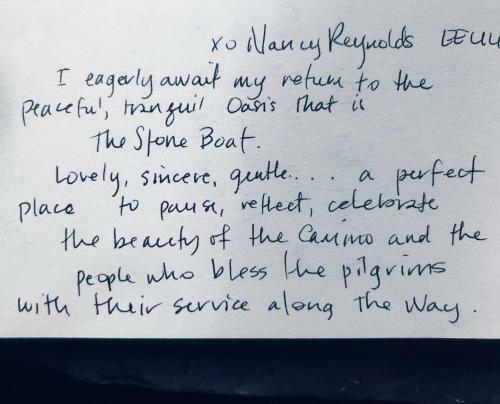 xo Nancy Reynolds EEUU
I eagerly await my return to the
peaceful, tranquil Oasis that is
The Stone Boat.
Lovely, sincere, gentle.... a perfect
place to pause, reflect, celebrate
the beauty of the Camino and the
people who bless the pilgrims
with their service along the Way.